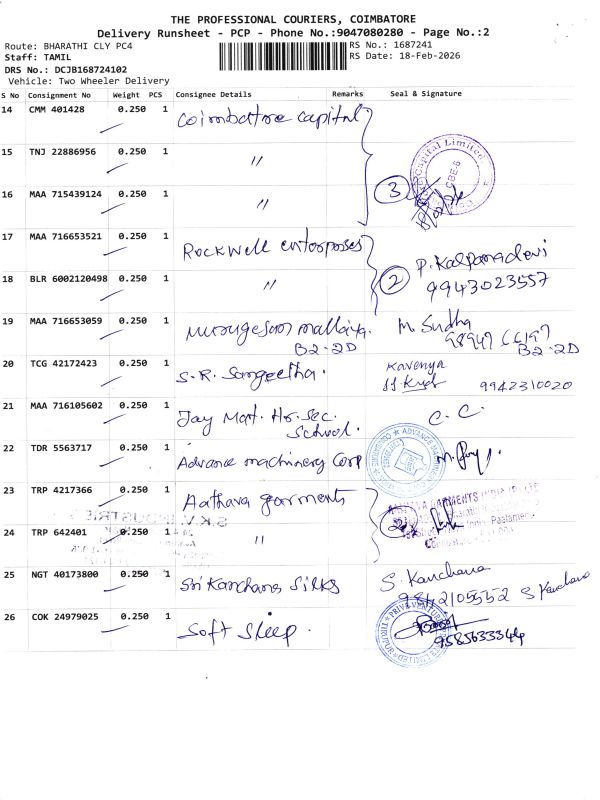 THE PROFESSIONAL COURIERS, COIMBATORE
Delivery Runsheet - PCP - Phone No.:9047080280 - Page No.:2
Route: BHARATHI CLY PC4 RS No.: 1687241
Staff: TAMIL RS Date: 18-Feb-2026
DRS No.: DCJB168724102
Vehicle: Two Wheeler Delivery
S No Consignment No Weight PCS Consignee Details Remarks Seal & Signature
14 CMM 401428 0.250 1 Coimbatore capital
15 TNJ 22886956 0.250 1 〃 Capital Limited
CBE-6
16 MAA 715439124 0.250 1 〃 3
17 MAA 716653521 0.250 1 Rockwell enterprises P. Kalpanadevi
18 BLR 6002120498 0.250 1 〃 2 9943023557
19 MAA 716653059 0.250 1 Murugesan mallaiya. M. Sudha
B2-2D B2-2D
20 TCG 42172423 0.250 1 S.R. Sangeetha. Kavenya
9942310020
21 MAA 716105602 0.250 1 Jay Mat. Hr. Sec. C. C.
School.
22 TDR 5563717 0.250 1 Advance machinery Corp
23 TRP 4217366 0.250 1 Aathava garments
24 TRP 642401 0.250 1 〃 2
25 NGT 40173800 0.250 1 Sri Kanchana Silks S. Kanchana
9842105552 S Kanchana
26 COK 24979025 0.250 1 Soft Sleep.
9585633344